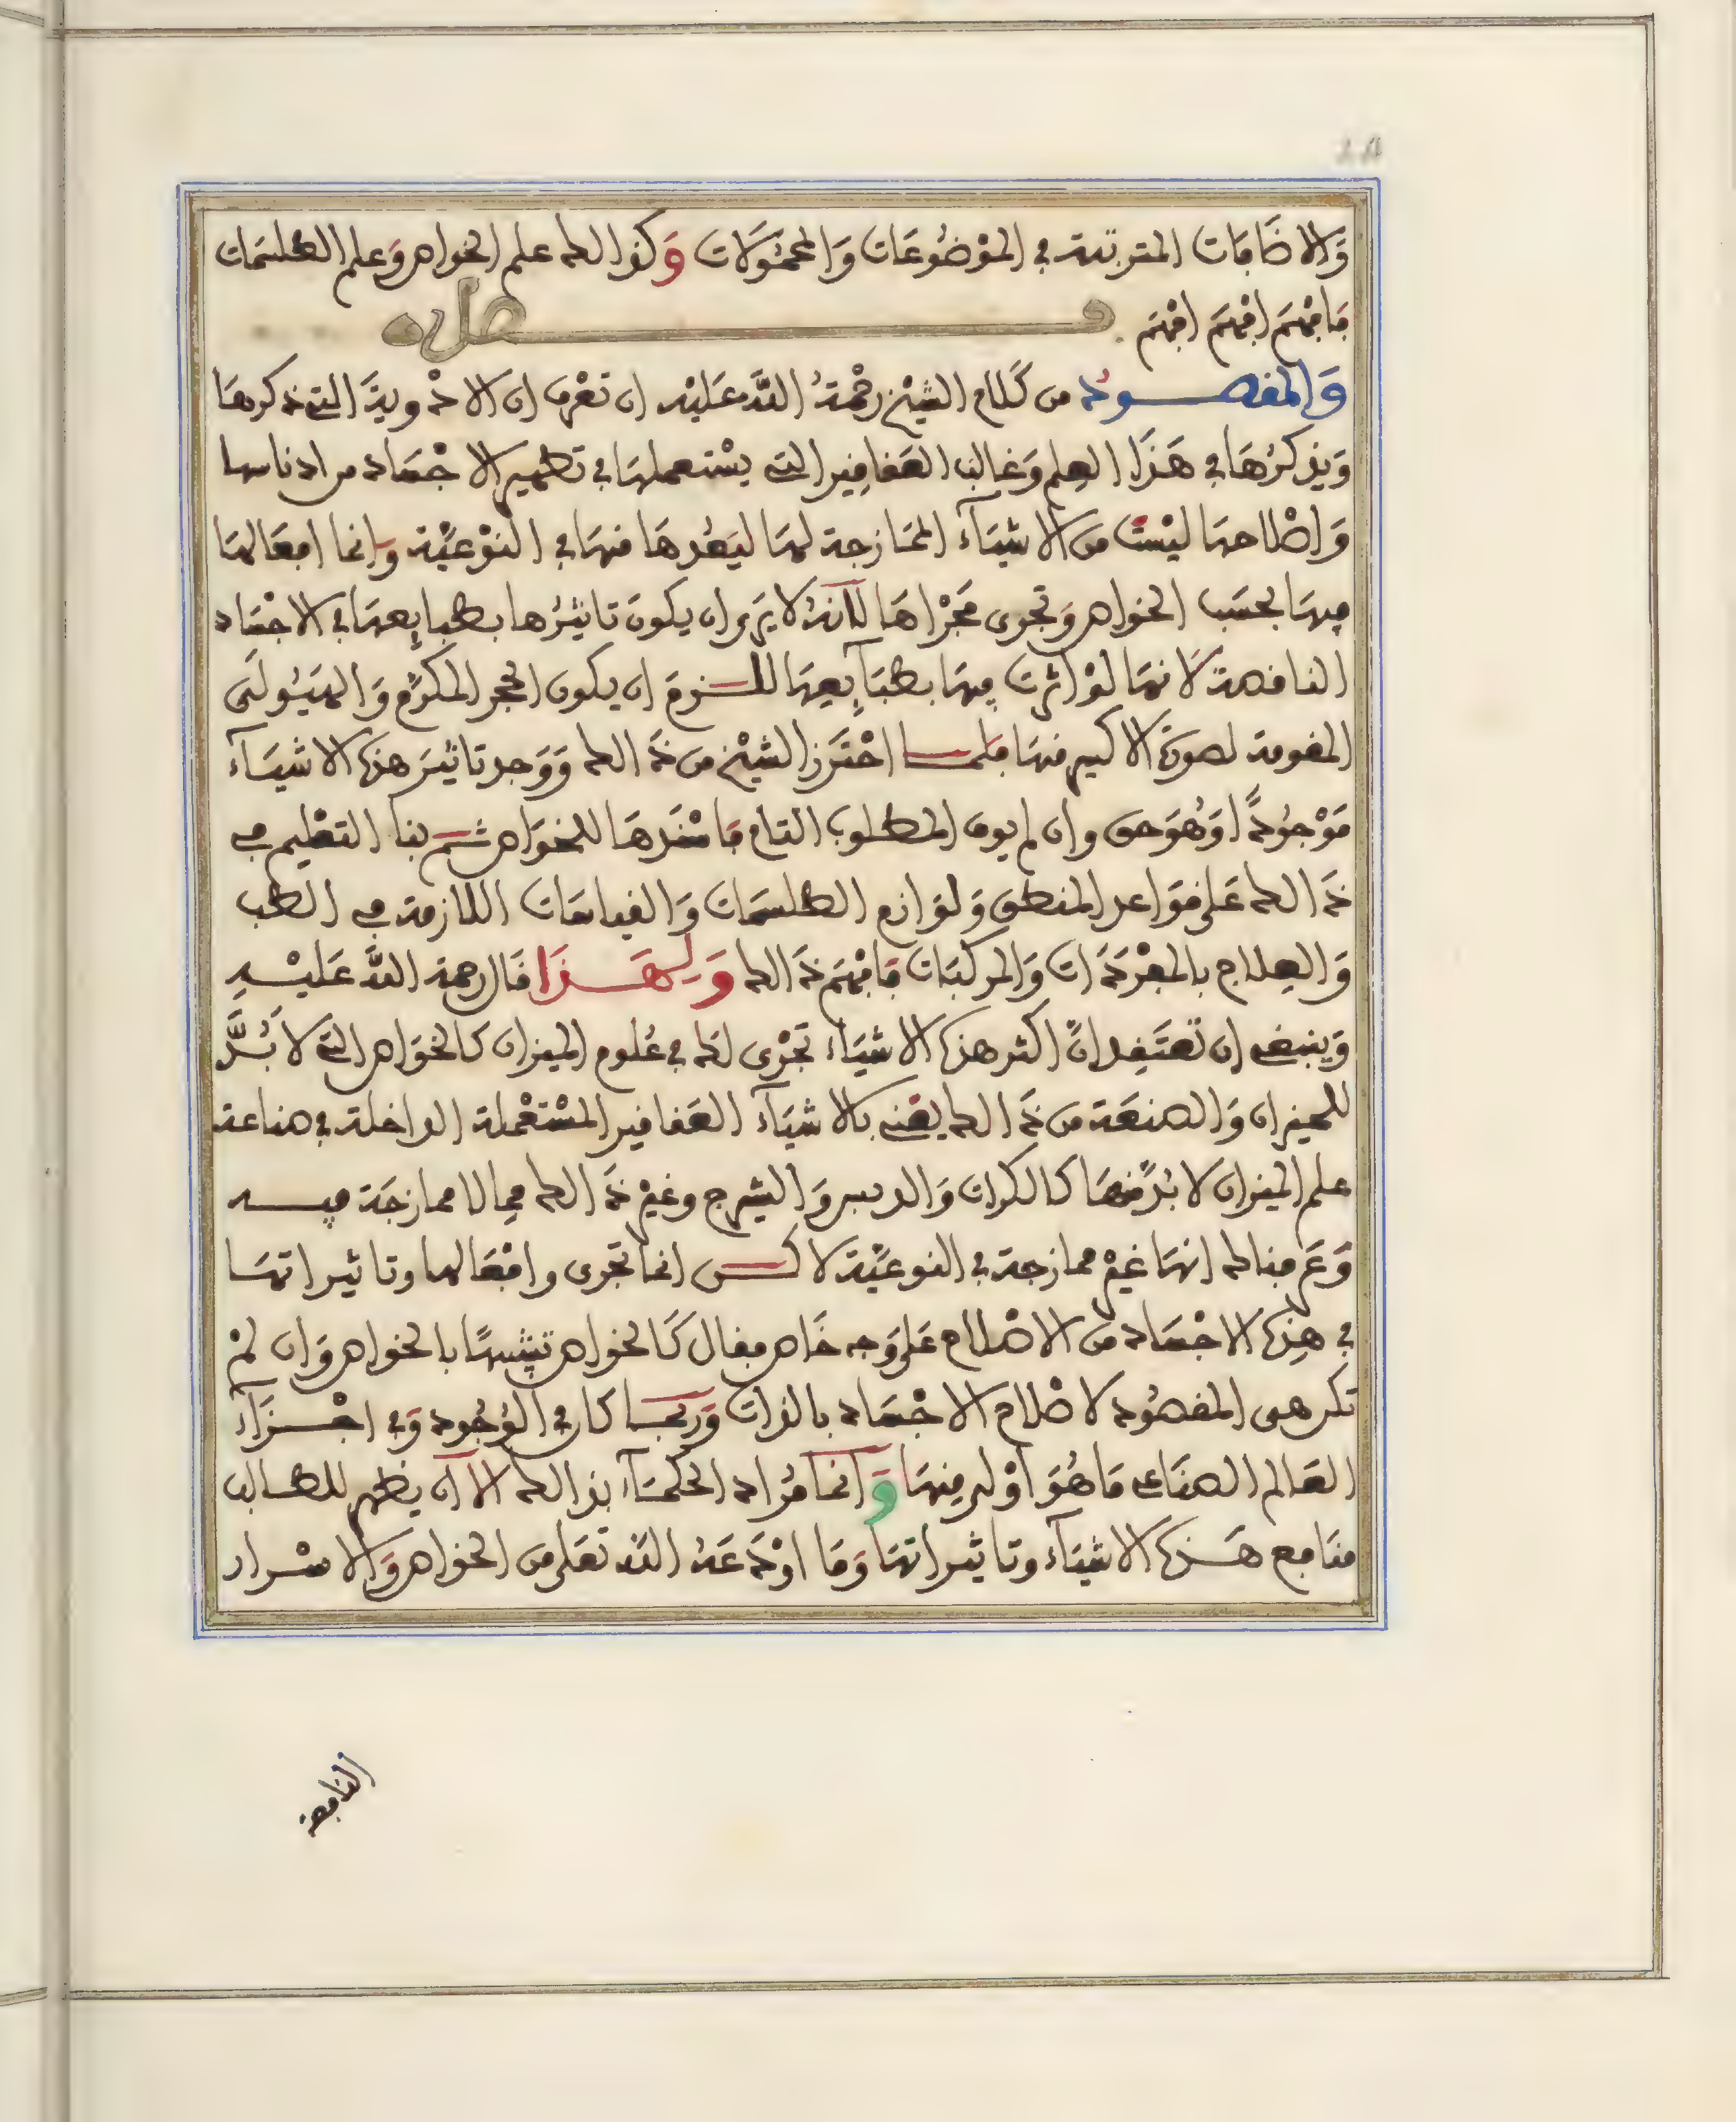 وَالاضَافات المترتبة في المَوْضُوعَات وَالمحمُولات وَكذالك علم الخواص وَعلم الطلسمَات
فافهَم افهَم افهَم فصل
وَالمقصود من كَلام الشيْخ رحْمَةُ اللَّه عَليْه ان تعْرف ان الادْويَة التي ذكرهَا
وَيذكرُهَا في هَذَا العِلم وَغالب العَقاقِير التي يسْتعملهَا في تطهير الاجْسَاد من ادناسها
وَاصْلاحهَا ليْسَتْ من الاشيَآء الممَازجة لهَا ليَبُعْدهَا منهَا في النوْعيَّة وَإنما افعَالهَا
فيهَا بحسَب الخواص وَتجرى مَجْرَاهَا لاَنهُ لا يَرى ان يكونَ تاثيرُها بطبايِعهَا في الاجْسَاد
الناقصة لاَنهَا لوْ اثرت فيهَا بطبَآيِعهَا للزمَ ان يكون الحجر المكرَّم وَالهَيُولَى
المقومة لصورَة الاكسير منهَا فلمَّا احْتَرز الشيْخ من ذَالك وَوَجد تاثيرَ هذه الاشيَآء
مَوْجُودًا وَهُوَ حق وان لم يوف المطلوب التام فاسْنَدهَا للخوَاص ثم بنا التعْليم في
ذَالك عَلى قوَاعد المنطق وَلوَازم الطلسمَات وَالقياسَات اللازمة في الطب
وَالعِلاج بالمفْرَدَات وَالمركبَات فافهَم ذَالك وَلِهَذَا قال رحمة اللَّه عَليْهِ
وَينبغي ان تعتَقِد انَّ اكثر هذه الاشيَآء تجْرى لك في عُلوم الميزان كالخوَاص التي لا بُدَّ
للميزان وَالصنعَة من ذَالك يعْني بالاشيَآء العَقاقير المسْتعْملة الداخلة في صناعة
علم الميزان لا بُدَّ منهَا كالكراث وَالدبس وَالشيرج وغيْر ذَالك مما لا ممازجَة فيه
وَعَرفناك انهَا غيْر ممازجة في النوعيَّة لاكن انما تجرى وافعَالها وتاثيراتهَا
في هذِه الاجسَاد من الاصْلاح عَلى وَجه خَاص فقال كَالخواص تشبيهًا بالخواص وَان لمْ
تكن هى المقصُود لاصْلاح الاجْسَاد بالذات وَربمَا كان في الوُجُود وَفي اجْزَآء
العَالم الصنَاعى مَا هُوَ اوْلى مِنهَا وَانما مُرَاد الحكمَآء بذالك الا ان يظهر للطالب
منَافع هَذه الاشيَآء وتاثيراتهَا وَمَا اوْدَعَهُ اللَّه تعَلى من الخواص وَالاسْرار
النافعة